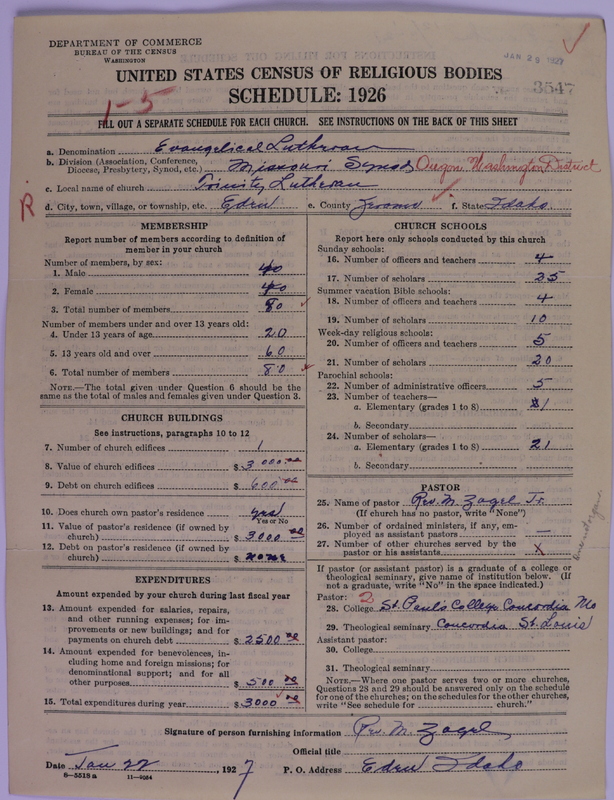 DEPARTMENT OF COMMERCE
BUREAU OF THE CENSUS
WASHINGTON
JAN 29 1927
UNITED STATES CENSUS OF RELIGIOUS BODIES
SCHEDULE: 1926
3547
1-5
FILL OUT A SEPARATE SCHEDULE FOR EACH CHURCH. SEE INSTRUCTIONS ON THE BACK OF THIS SHEET
a. Denomination Evangelical Lutheran
b. Division (Association, Conference, Diocese, Presbytery, Synod, etc.) Missouri Synod Oregon Washington District
c. Local name of church Trinity Lutheran
R
d. City, town, village, or township, etc. Eden e. County Jerome f. State Idaho
MEMBERSHIP
Report number of members according to definition of
member in your church
Number of members, by sex:
1. Male 40
2. Female 40
3. Total number of members 80
Number of members under and over 13 years old:
4. Under 13 years of age 20
5. 13 years old and over 60
6. Total number of members 80
NOTE.—The total given under Question 6 should be
the same as the total of males and females given under Question 3.
CHURCH BUILDINGS
See instructions, paragraphs 10 to 12
7. Number of church edifices 1
8. Value of church edifices $ 3000 00
9. Debt on church edifices $ 600 00
10. Does church own pastor's residence yes
Yes or No
11. Value of pastor's residence (if owned by
church) $ 3000 00
12. Debt on pastor's residence (if owned by
church) $ none
EXPENDITURES
Amount expended by your church during last fiscal year
13. Amount expended for salaries, repairs,
and other running expenses; for im-
provements or new buildings; and for
payments on church debt $ 2500 00
14. Amount expended for benevolences, in-
cluding home and foreign missions; for
denominational support; and for all
other purposes $ 500 00
15. Total expenditures during year $ 3000 00
CHURCH SCHOOLS
Report here only schools conducted by this church
Sunday schools:
16. Number of officers and teachers 4
17. Number of scholars 35
Summer vacation Bible schools:
18. Number of officers and teachers 4
19. Number of scholars 10
Week-day religious schools:
20. Number of officers and teachers 5
21. Number of scholars 20
Parochial schools:
22. Number of administrative officers 5
23. Number of teachers—
a. Elementary (grades 1 to 8) 1
b. Secondary
24. Number of scholars—
a. Elementary (grades 1 to 8) 21
b. Secondary
PASTOR
25. Name of pastor Rev. M. Zagel Jr.
(If church has no pastor, write "None")
26. Number of ordained ministers, if any, em-
ployed as assistant pastors —
27. Number of other churches served by the
pastor or his assistants x
If pastor (or assistant pastor) is a graduate of a college or
theological seminary, give name of institution below. (If
not a graduate, write "No" in the space indicated.)
Pastor: 2
28. College St. Pauls College Concordia Mo
29. Theological seminary Concordia St. Louis
Assistant pastor:
30. College
31. Theological seminary
NOTE.—Where one pastor serves two or more churches,
Questions 28 and 29 should be answered only on the schedule
for one of the churches; on the schedules for the other churches,
write "See schedule for church."
Signature of person furnishing information Rev. M. Zagel
Official title
Date Jan 22, 1927 P. O. Address Eden Idaho
6—5518 a 11—9064